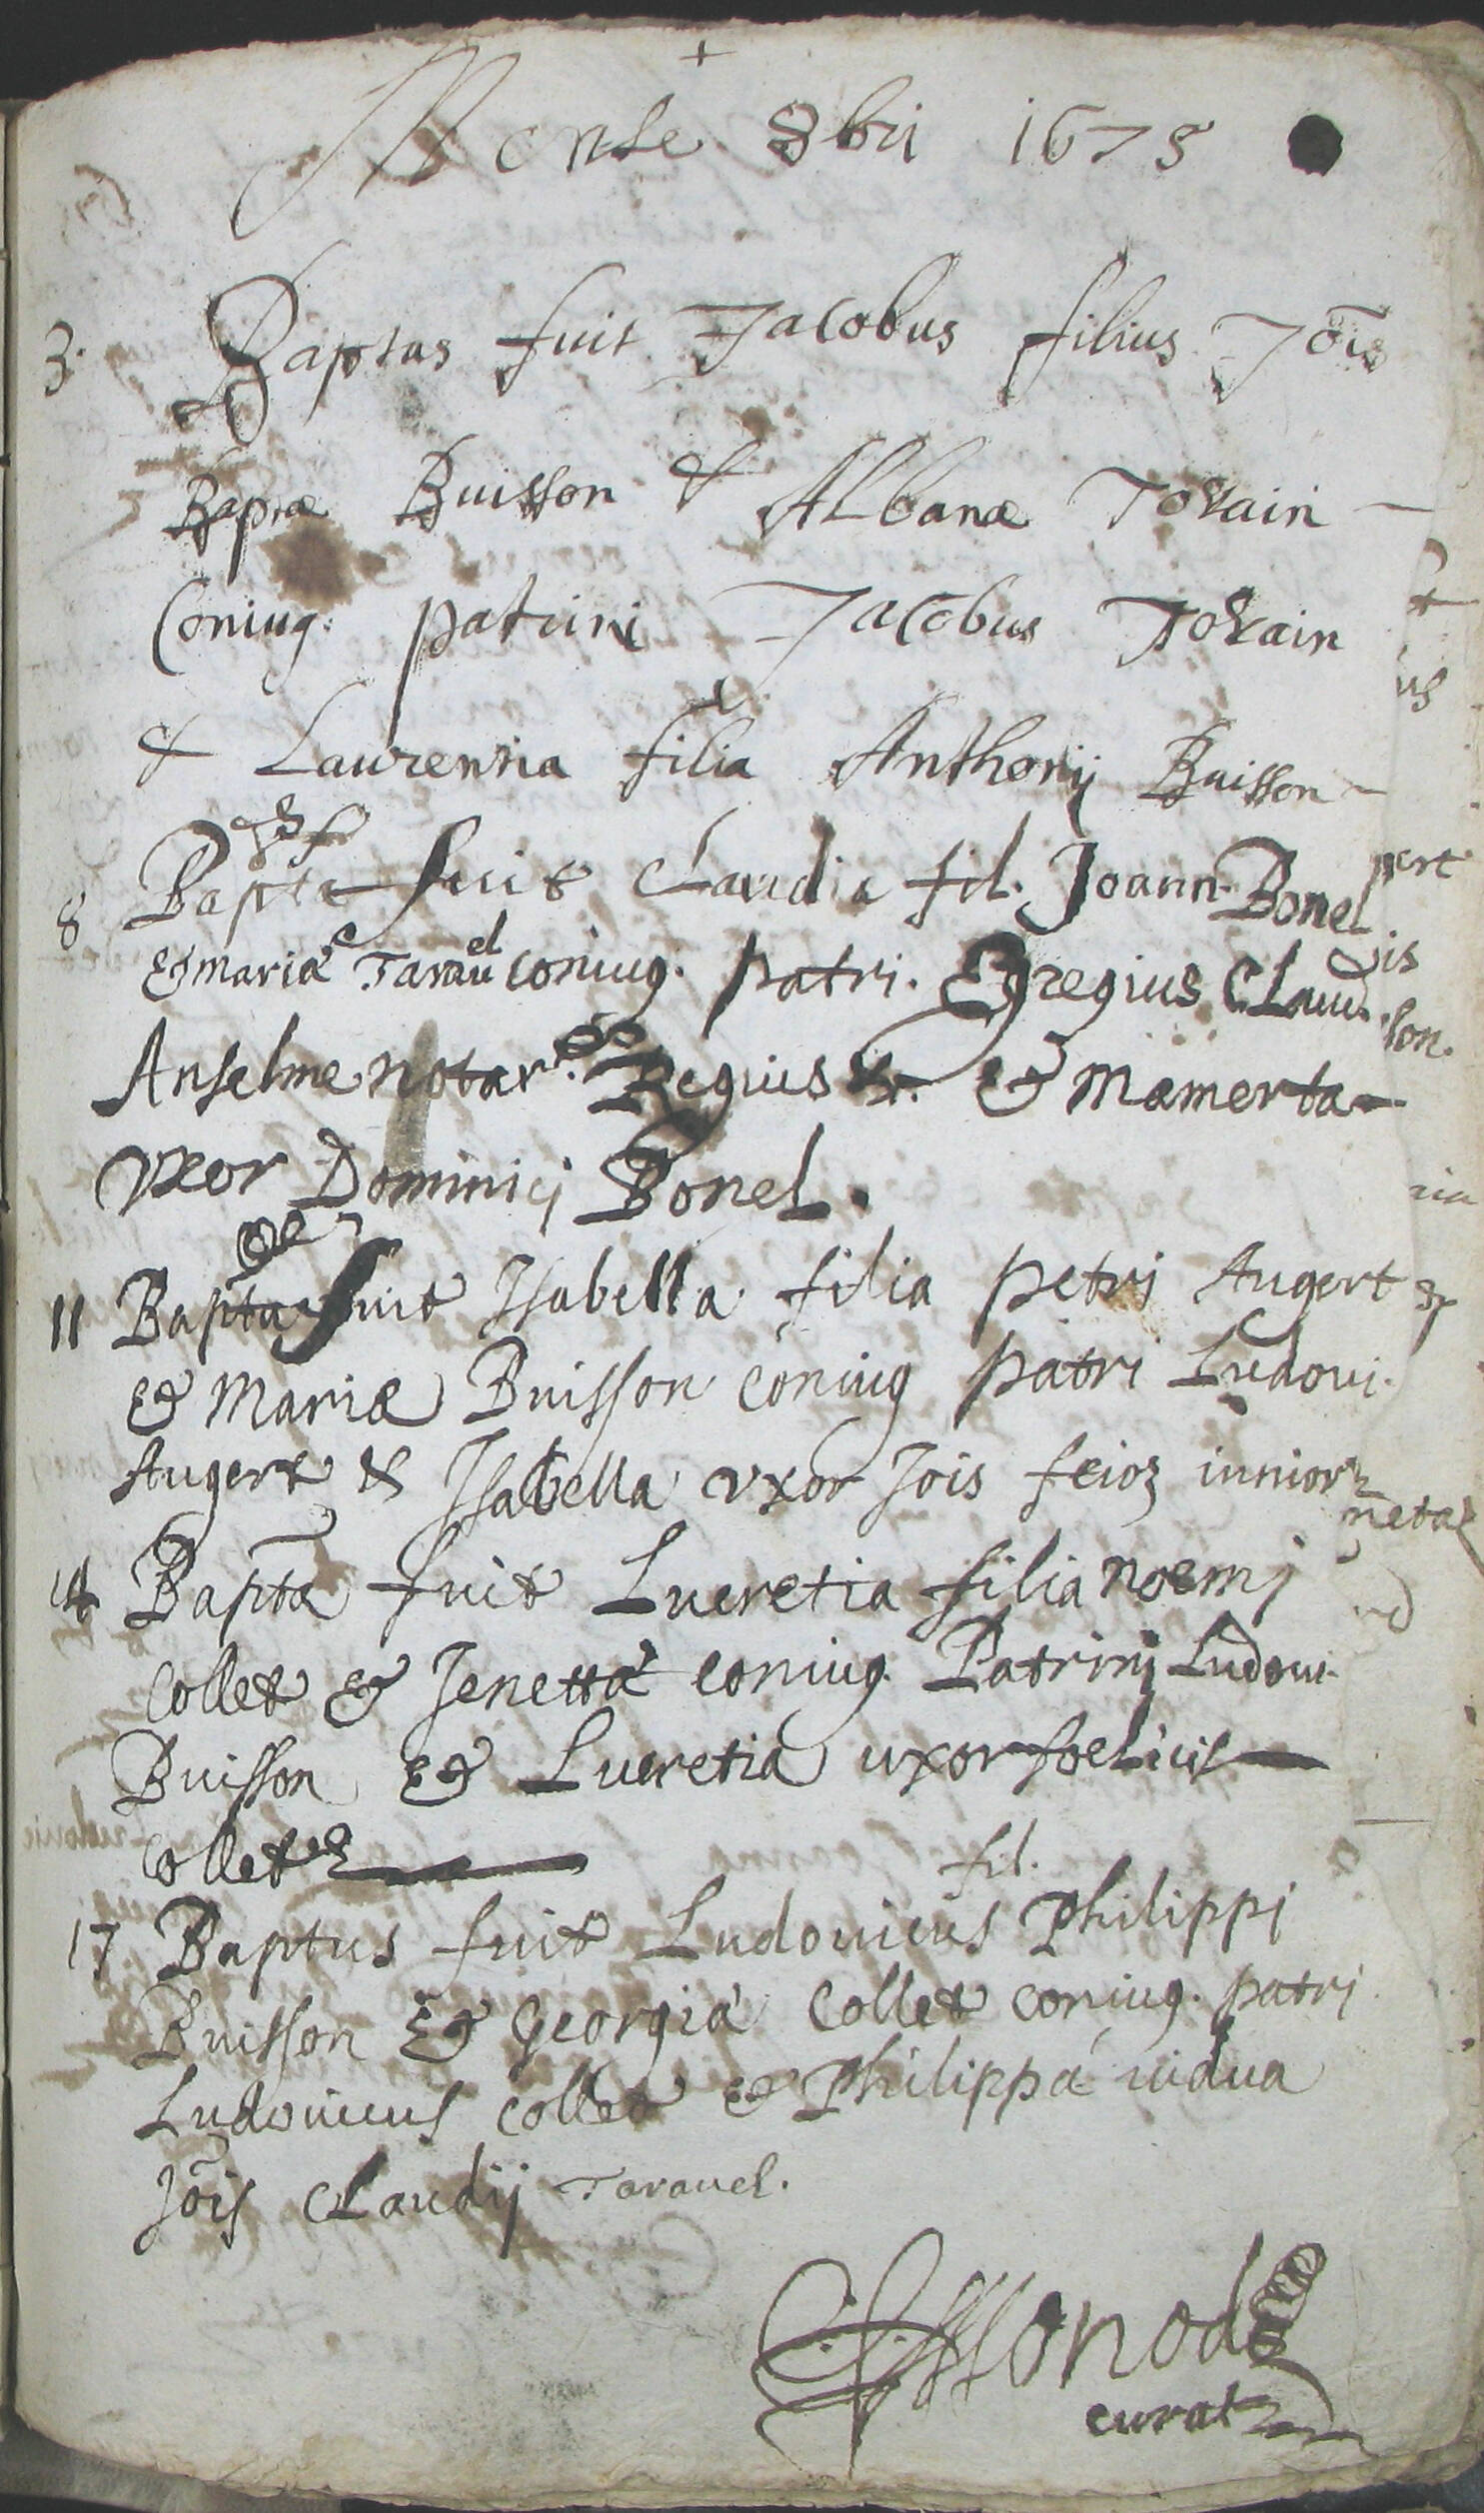 Mense 8bri 1675
3. Baptus fuit Jacobus filius Jõis
Baptæ Buisson & Albanæ Torain
Coniug. patrini Jacobus Torain
& Laurentia filia Anthonij Buisson
8 Bapta fuit Claudia fil. Joann. Bonel
& mariæ Tarauel coniug. patri. Egregius Claud.
Anselme notar. Regius &. & Mamerta
vxor Dominici Bonel.
11 Bapta fuit Isabella filia petri Augert
& Mariæ Buisson coniug patri Ludoui.
Augert & Isabella vxor Jois feioz iunior
14 Bapta fuit Lucretia filia noemj
Collet & Jenetta coniug. Patrinj Ludoui.
Buisson & Lucretia uxor foelicis
Collet
fil.
17 Baptus fuit Ludouicus Philippi
Buisson & Georgia Collet coniug. patri
Ludouicus Collet & Philippa uidua
Jõis Claudij Tarauel.
curat